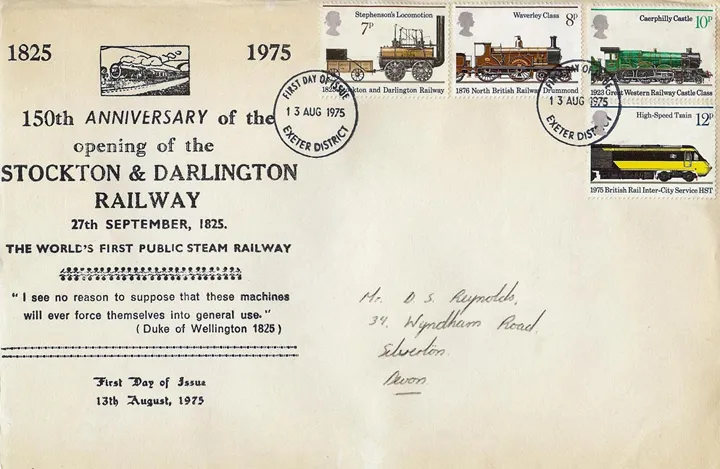 1825 1975
150th ANNIVERSARY of the
opening of the
STOCKTON & DARLINGTON
RAILWAY
27th SEPTEMBER, 1825.
THE WORLD'S FIRST PUBLIC STEAM RAILWAY
" I see no reason to suppose that these machines
will ever force themselves into general use. "
( Duke of Wellington 1825 )
First Day of Issue
13th August, 1975
Stephenson's Locomotion
7p
1825 Stockton and Darlington Railway
Waverley Class
8p
1876 North British Railway Drummond
Caerphilly Castle
10p
1923 Great Western Railway Castle Class
High-Speed Train
12p
1975 British Rail Inter-City Service HST
FIRST DAY OF ISSUE
13 AUG 1975
EXETER DISTRICT
FIRST DAY OF ISSUE
13 AUG 1975
EXETER DISTRICT
Mr. D S Reynolds,
34, Wyndham Road,
Silverton.
Devon.